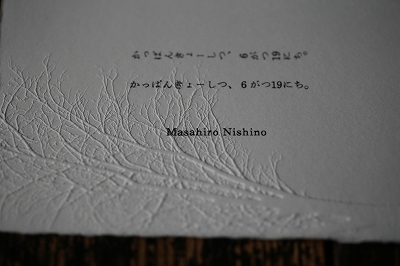 かっぱんきょーしつ、6がつ19にち。
かっぱんきょーしつ、6がつ19にち。
Masahiro Nishino